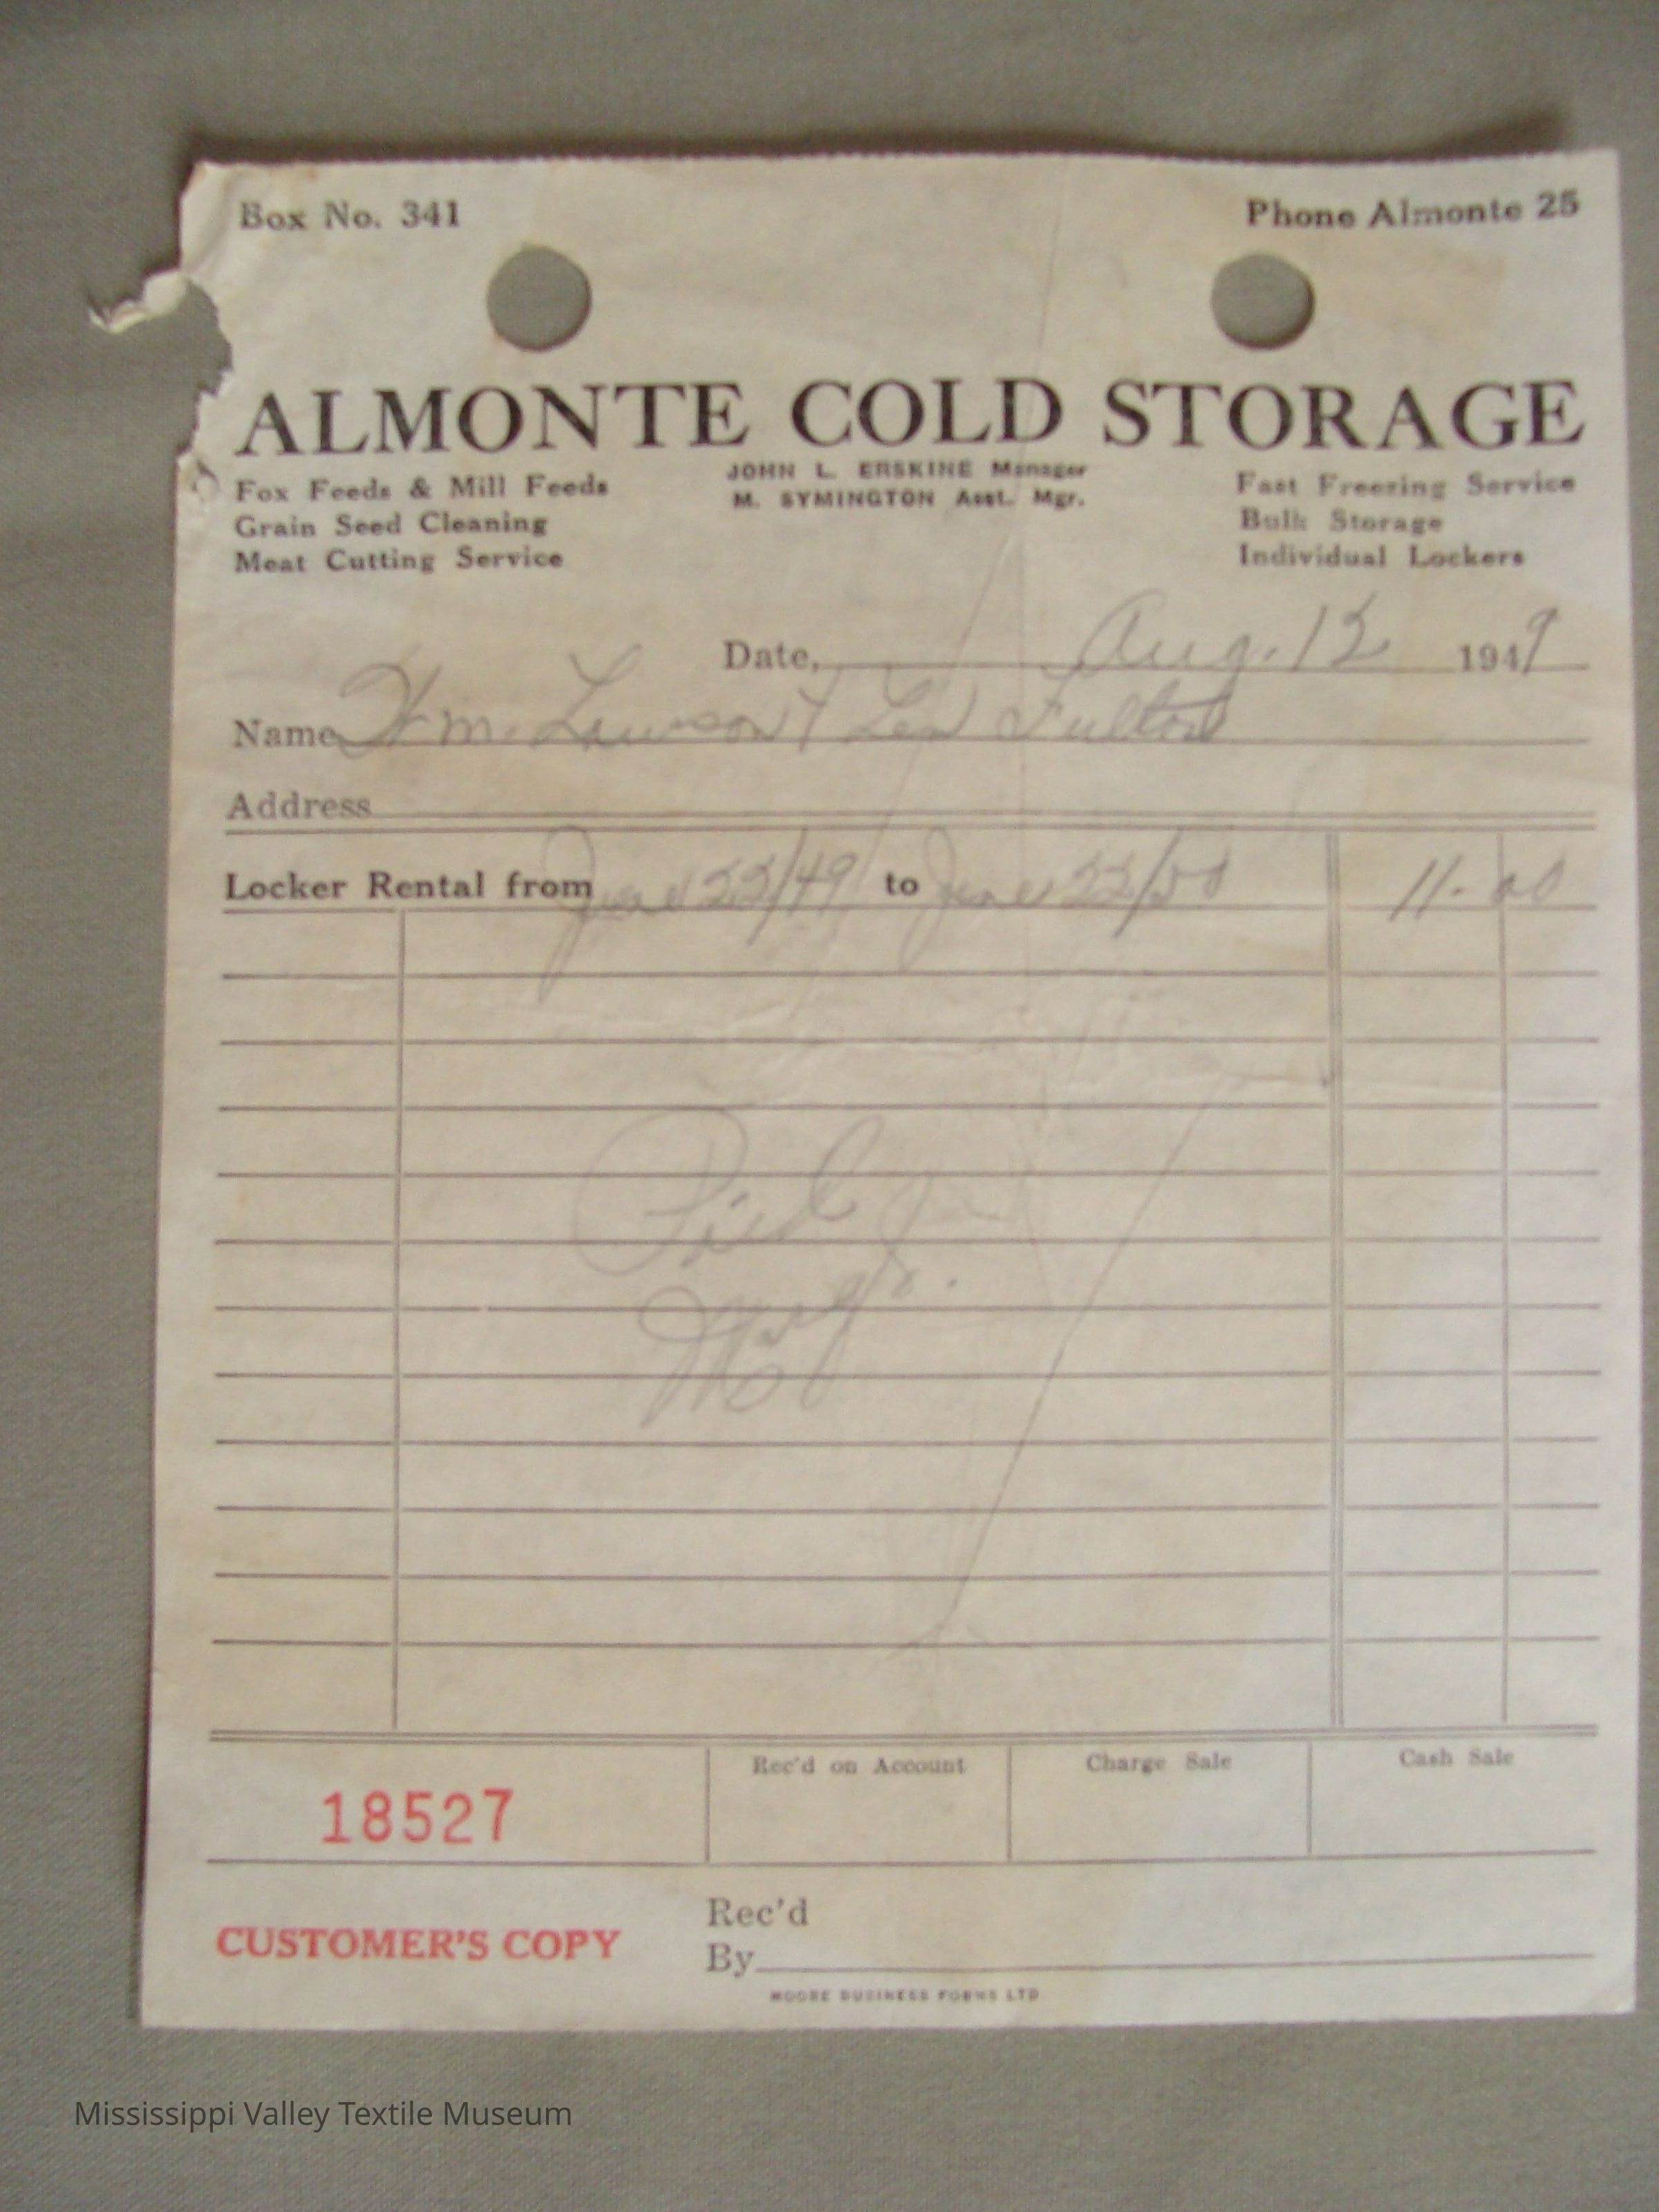 Box No. 341 Phone Almonte 25
ALMONTE COLD STORAGE
Fox Feeds & Mill Feeds
Grain Seed Cleaning
Meat Cutting Service
JOHN L. ERSKINE Manager
M. SYMINGTON Asst. Mgr.
Fast Freezing Service
Bulk Storage
Individual Lockers
Date, Aug. 13 1949
Name Wm. Lawson & Len Fulton
Address
Locker Rental from June 22/49 to June 22/50 11.00
Paid
18527
Rec'd on Account Charge Sale Cash Sale
CUSTOMER'S COPY
Rec'd
By
MOORE BUSINESS FORMS LTD
Mississippi Valley Textile Museum